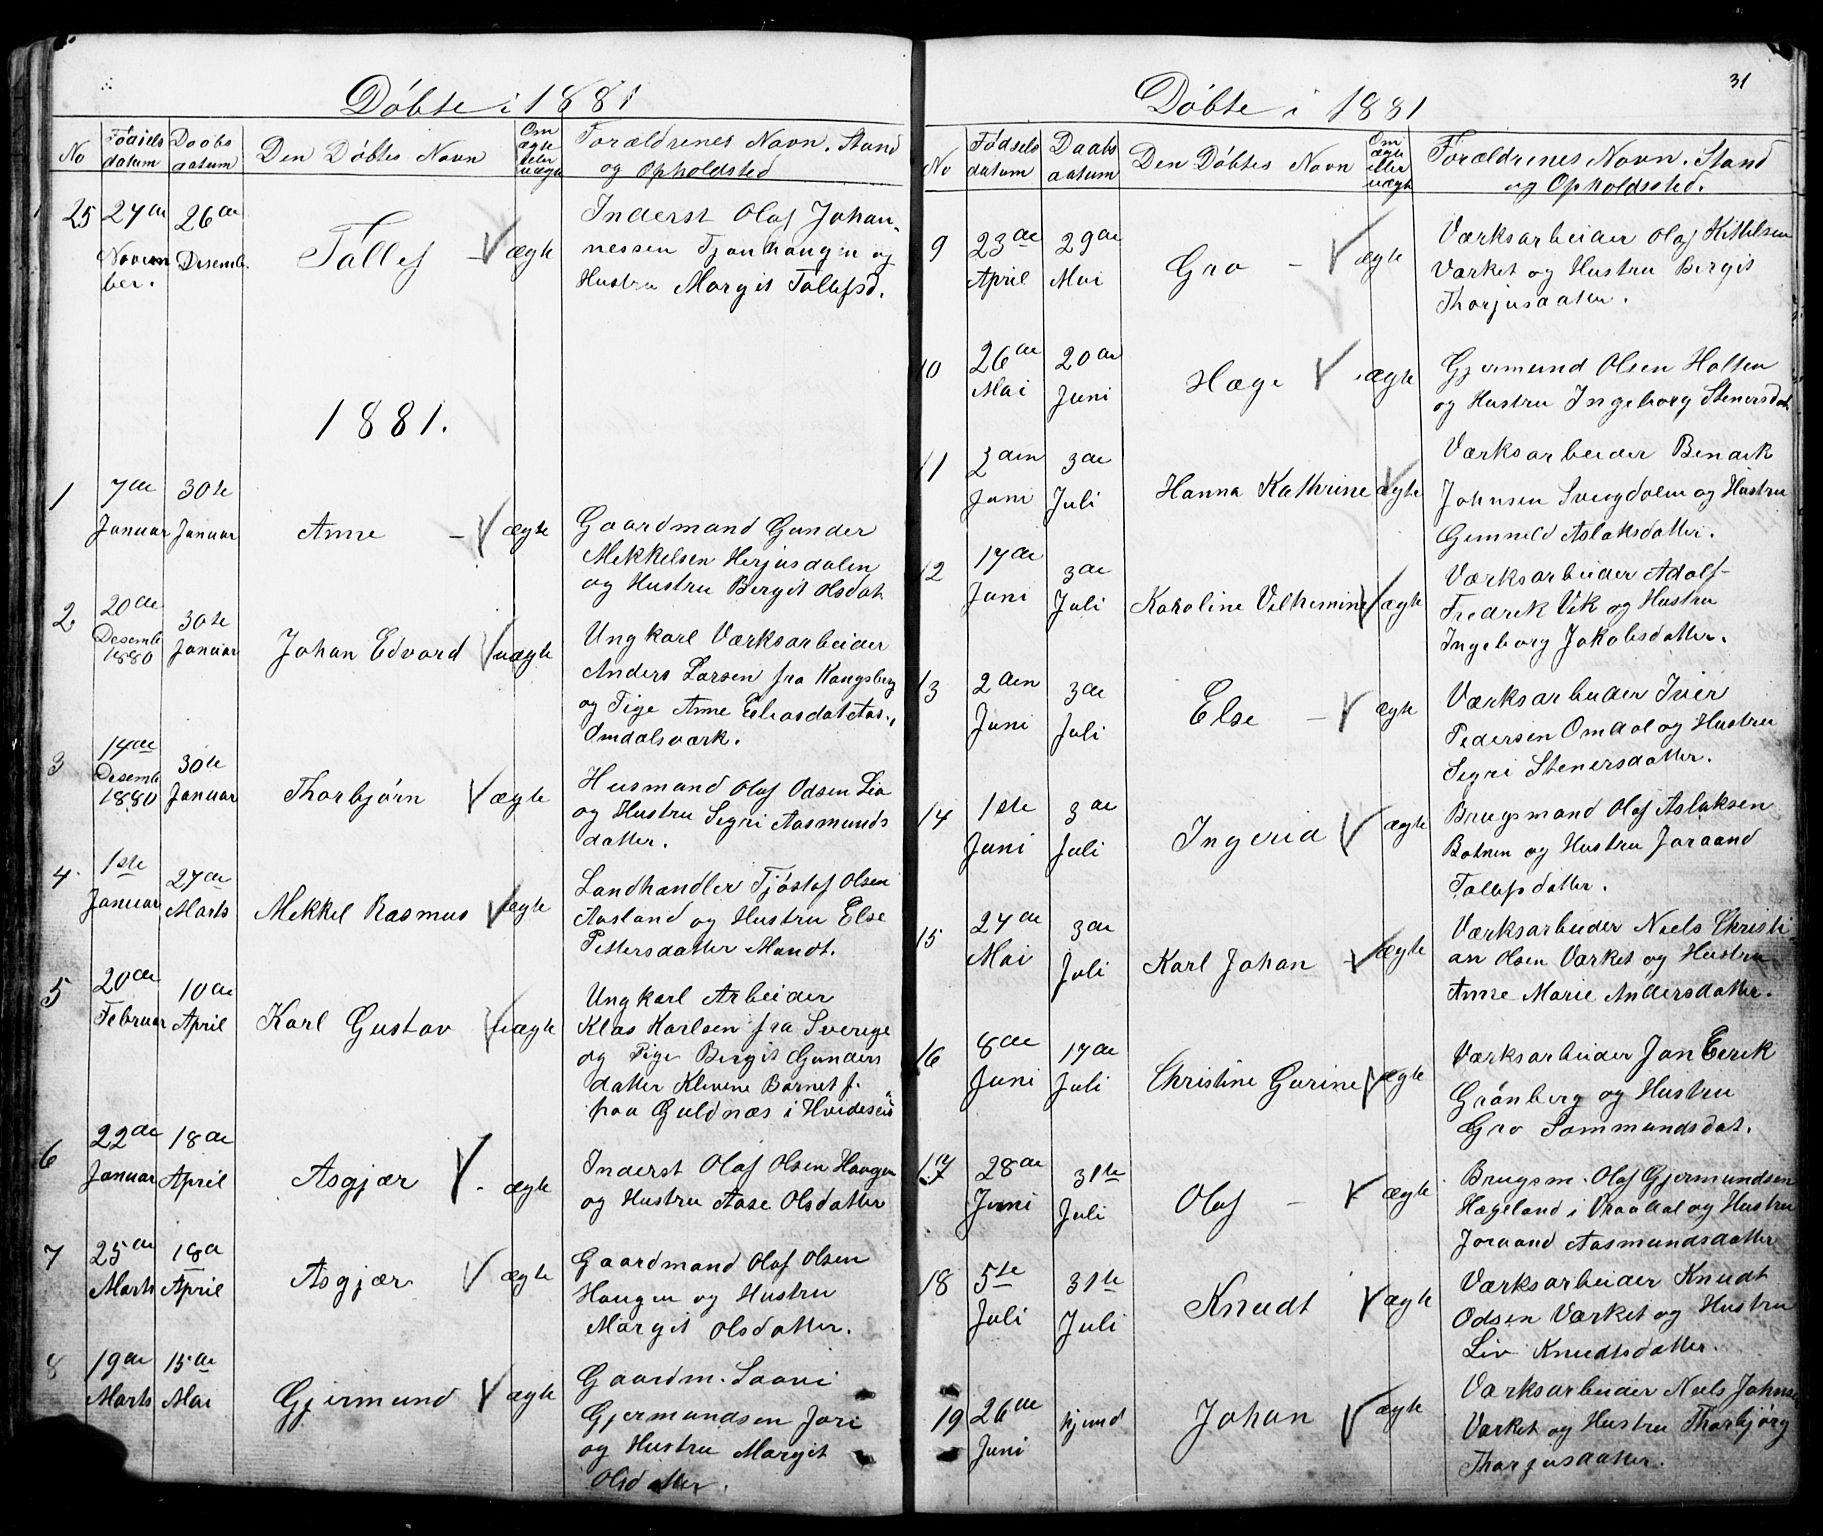 Döbte i 1881
No
Födsels datum
Daabs datum
Den Döbtes Navn
Om ægte eller uægte
Forældrenes Navn. Stand
og Opholdsted
25
27de
Novem
ber.
26de
Desemb.
Tallef
ægte
Inderst Olaf Johan-
nessen og
Hustru Margit Tallefsd.
1881.
1
7de
Januar
30te
Januar
Anne
ægte
Gaardmand Gunder
Mekkelsen Herjusdalen
og Hustru Bergit Olsdat
2
20de
Desemb
1880
30te
Januar
Johan Edvard
uægte
Ungkarl Værksarbeider
Anders Larsen fra Kongsberg
og Pige Anne
Omdalsværk.
3
14de
Desemb
1880
30te
Januar
Thorbjörn
ægte
Husmand Olaf Odsen Lia
og Hustru Segri Aasmunds
datter.
4
1ste
Januar
27de
Marts
Mekkel Rasmus
ægte
Landhandler Tjöstaf Olsen
Aasland og Hustru Else
Pettersdatter Mandt.
5
20de
Februar
10de
April
Karl Gustav
uægte
Ungkarl Arbeider
Klas Karlsen fra Sverige
og Pige Bergit Gunders
datter Klevene Barnet f.
paa Guldnæs i Hvideseid
6
22de
Januar
18de
April
Asgjær
ægte
Inderst Olaf Olsen Haugen
og Hustru Aase Olsdatter
7
25de
Marts
18de
April
Asgjær
ægte
Gaardmand Olaf Olsen
Haugen og Hustru
Margit Olsdatter.
8
19de
Marts
15de
Mai
Gjermund
ægte
Gaardm. Saavi
Gjermundsen Jori
og Hustru Margit
Olsdatter.
31
Döbte i 1881
No
Födsels datum
Daabs datum
Den Döbtes Navn
Om ægte eller uægte
Forældrenes Navn. Stand
og Opholdssted.
9
23de
April
29de
Mai
Gro
ægte
Værksarbeider Olaf Kittelsen
Værket og Hustru Bergit
Thorjusdatter.
10
26de
Mai
20de
Juni
Hæge
ægte
Gjermund Olsen Holten
og Hustru Ingeborg Stenersdat.
11
2den
Juni
3de
Juli
Hanna Kathrine
ægte
Værksarbeider Bendik
Johnsen og Hustru
Gunneld Aslaksdatter.
12
17de
Juni
3de
Juli
Karoline Velhemine
ægte
Værksarbeider Adolf-
Fredrik Vik og Hustru
Ingeborg Jakobsdatter.
13
2den
Juni
3de
Juli
Else
ægte
Værksarbeider Iver
Pedersen Omdal og Hustru
Segri Stenersdatter.
14
1ste
Juni
3de
Juli
Ingerid
ægte
Brugsmand Olaf Aslaksen
Botnen og Hustru Joraand
Tallefsdatter.
15
24de
Mai
3de
Juli
Karl Johan
ægte
Værksarbeider Niels Christi
an Olsen Værket og Hustru
Anne Marie Andersdatter.
16
8de
Juni
17de
Juli
Christine Gurine
ægte
Værksarbeider Jan Eerik
Grönberg og Hustru
Gro Sommundsdat.
17
28de
Juni
31te
Juli
Olaf
ægte
Brugsm. Olaf Gjermundsen
Hægeland i Vraadal og Hustru
Joraand Aasmundsdatter
18
5te
Juli
31te
Juli
Knudt
ægte
Værksarbeider Knudt
Odsen Værket og Hustru
Liv Knudtsdatter.
19
26de
Juni
hjemd
Johan
ægte
Værksarbeider Niels Johnsen
Værket og Hustru Thorbjörg
Thorjusdatter.